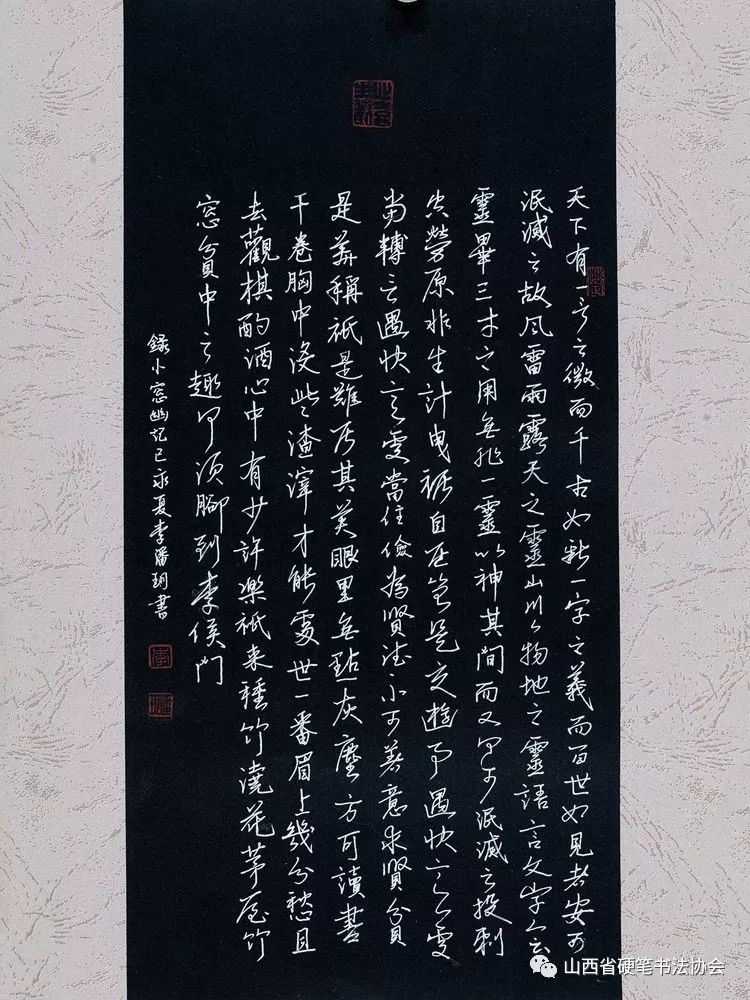 天下有一言之微而千古如新一字之義而百世如見者安可
泯滅之故风雷雨露天之靈山川人物地之靈語言文字人之
靈畢三才之用無非一靈以神其間而又何可泯滅之投刺
空勞原非生計曳裾自屈豈是交遊事遇快意處
當轉言遇快意處當住儉為賢德不可著意求賢貧
是美稱祇是難居其美眼里無點灰塵方可讀書
千卷胸中沒些渣滓才能處世一番眉上幾分愁且
去觀棋酌酒心中有少許樂祇来種竹澆花茅屋竹
窓貧中之趣何須腳到李侯門
錄小窓幽記己亥夏李潘玥書
山西省硬笔书法协会